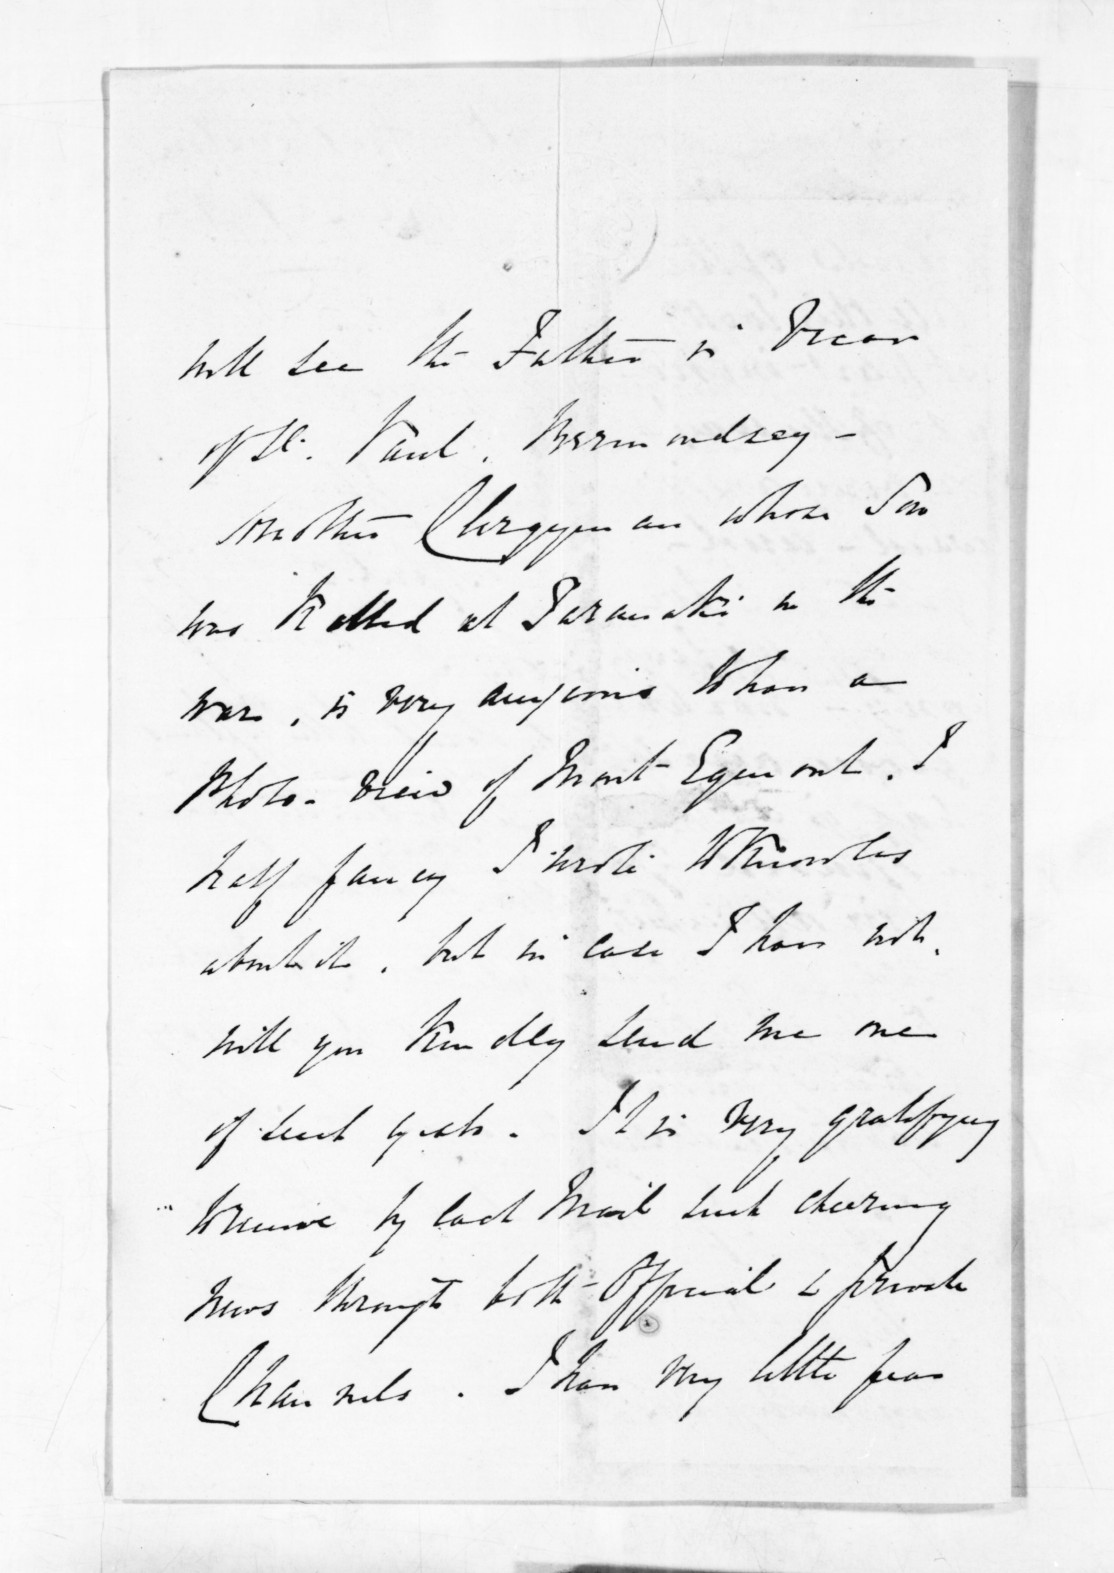 will see the Father is Vicar
of St. Paul, Bermondsey -
Another Clergyman whose Son
was Killed at Taranaki in the
war, is very anxious to have a
Photo - view of Mount Egmont. I
half fancy I wrote to Knowles
about it, but in case I have not,
will you Kindly send me one
of such yrself. It is very gratifying
to receive by last Mail such cheering
news through both Official & private
Channels. I have very little fear